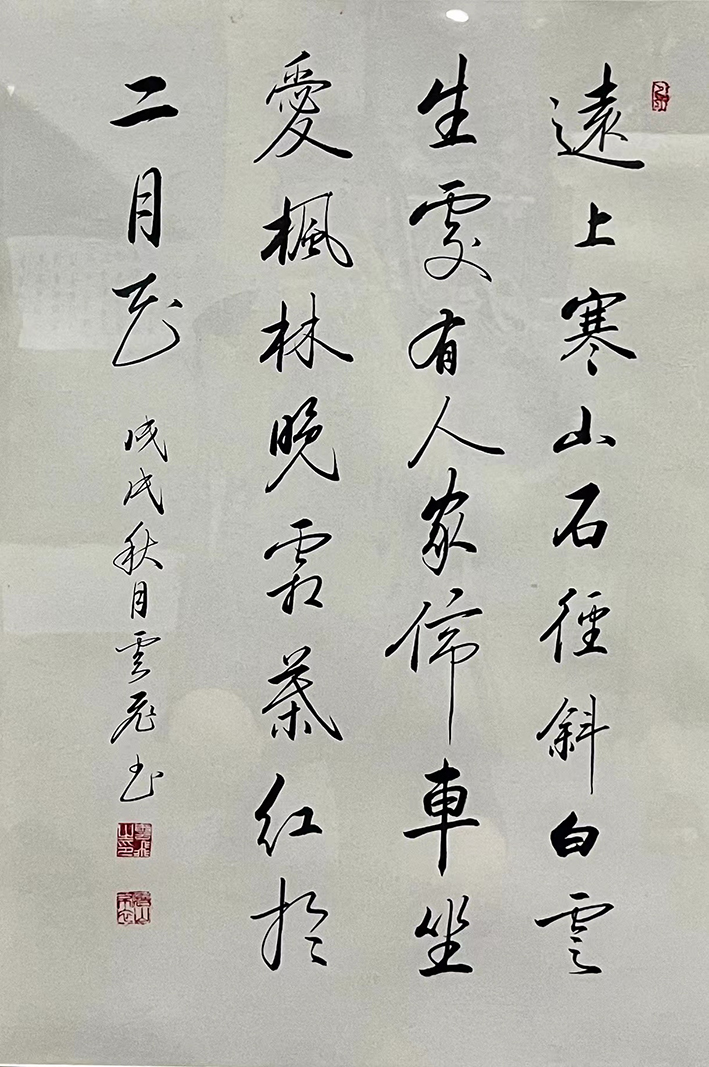 遠上寒山石徑斜白雲
生處有人家停車坐
愛楓林晚霜葉紅於
二月花
戊戌秋月雲飛書
雲飛之印